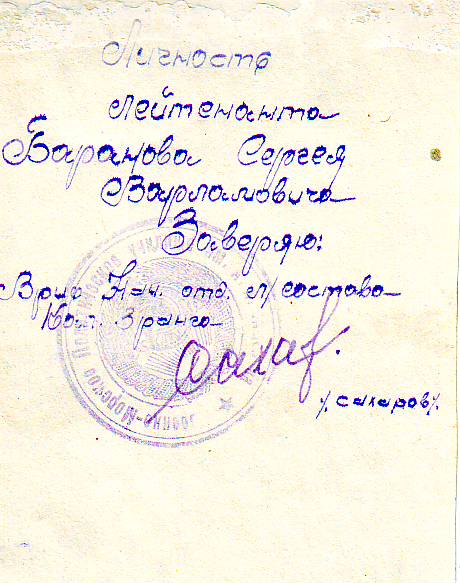 Личность
лейтенанта
Баранова Сергея
Варламовича
Заверяю:
Врид Нач. отд. л/состава
Кап. 3 ранга
/Сахаров/.
Военно-Морское